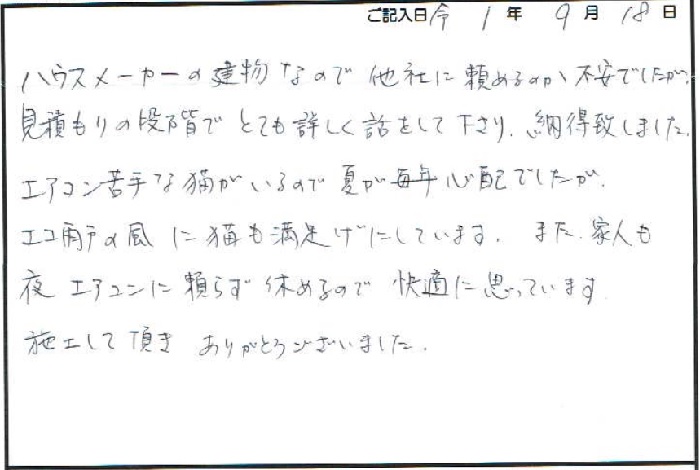 ご記入日 令 1 年 9 月 18 日
ハウスメーカーの建物なので他社に頼めるのか、不安でしたが、
見積もりの段階でとても詳しく話をして下さり、納得致しました。
エアコン苦手な猫がいるので夏が毎年心配でしたが、
エコ雨戸の風に猫も満足げにしています。また、家人も
夜エアコンに頼らず休めるので快適に思っています
施工して頂きありがとうございました。